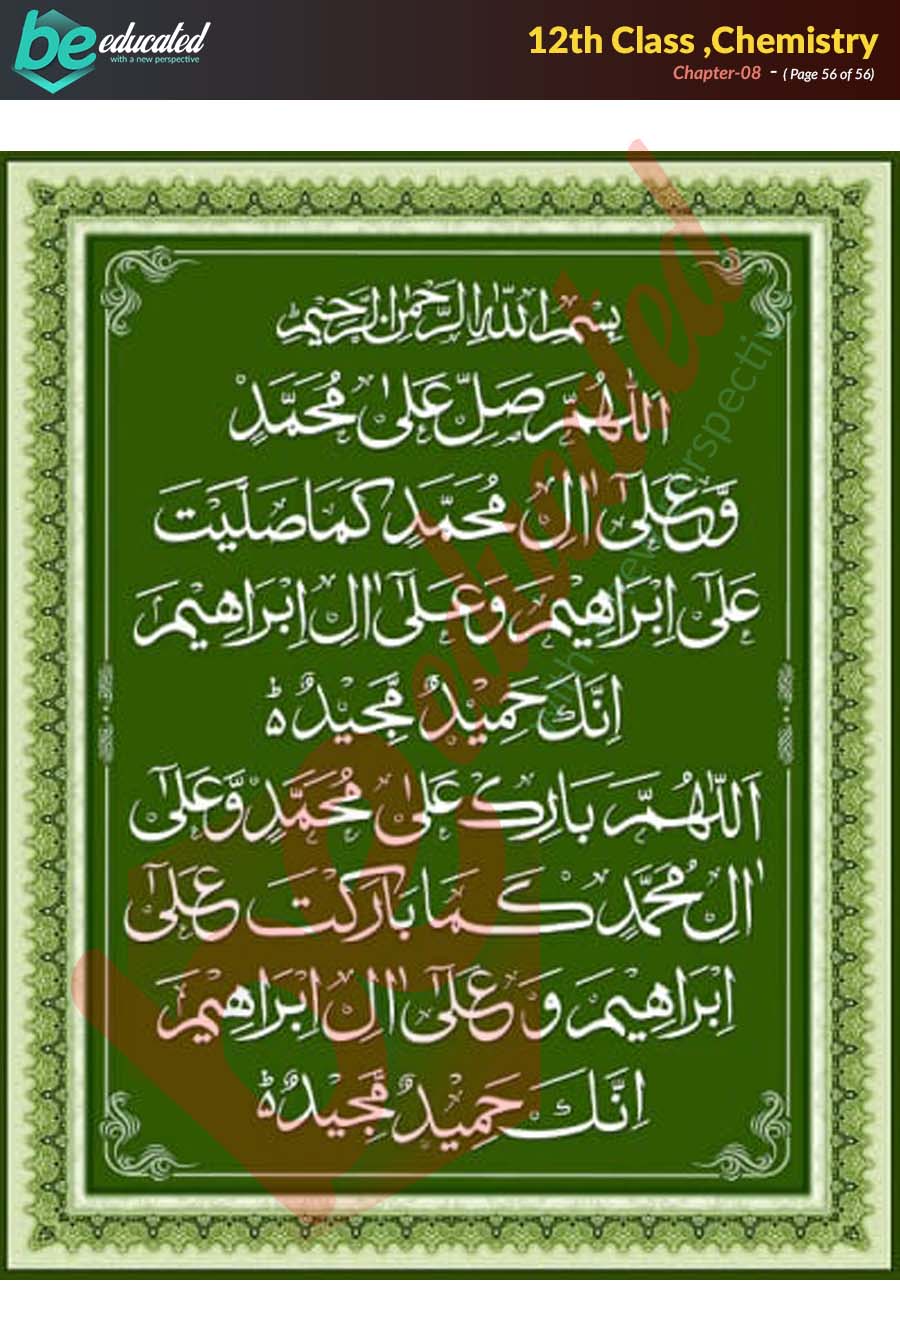 be educated
with a new perspective
12th Class ,Chemistry
Chapter-08 - ( Page 56 of 56)
بِسْمِ اللّٰهِ الرَّحْمٰنِ الرَّحِيْمِ
اَللّٰهُمَّ صَلِّ عَلٰى مُحَمَّدٍ
وَّعَلٰٓى اٰلِ مُحَمَّدٍ كَمَا صَلَّيْتَ
عَلٰٓى اِبْرَاهِيْمَ وَعَلٰٓى اٰلِ اِبْرَاهِيْمَ
اِنَّكَ حَمِيْدٌ مَّجِيْدٌ ہؕ
اَللّٰهُمَّ بَارِكْ عَلٰى مُحَمَّدٍ وَّعَلٰٓى
اٰلِ مُحَمَّدٍ كَمَا بَارَكْتَ عَلٰٓى
اِبْرَاهِيْمَ وَعَلٰٓى اٰلِ اِبْرَاهِيْمَ
اِنَّكَ حَمِيْدٌ مَّجِيْدٌ ہؕ
be educated
with a new perspective